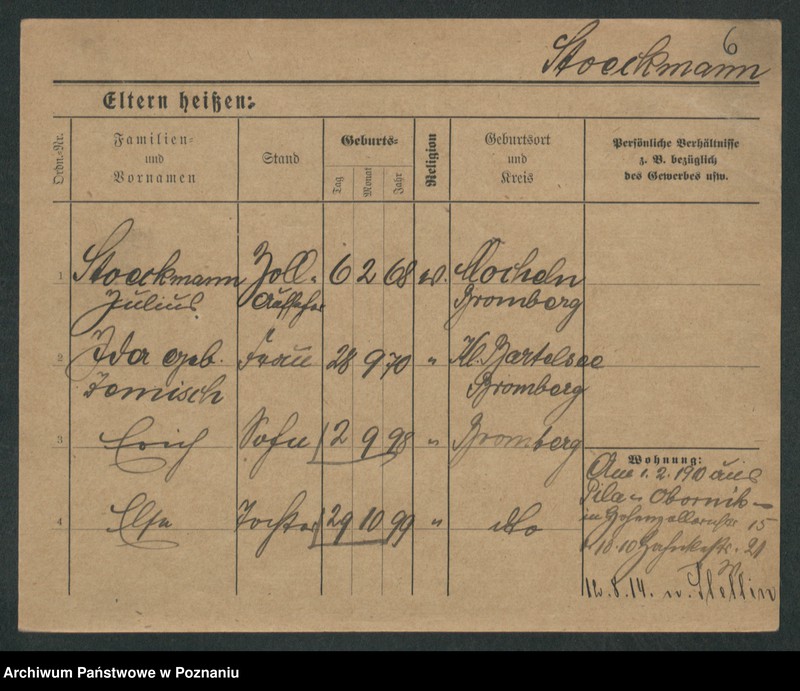 6
Stoeckmann
Eltern heißen:
Ordn.-Nr.
Familien-
und
Vornamen
Stand
Geburts-
Tag
Monat
Jahr
Religion
Geburtsort
und
Kreis
Persönliche Verhältnisse
z. B. bezüglich
des Gewerbes usw.
1 Stoeckmann Zoll- 6 2 68 ev. Mocheln
Julius Aufseher Bromberg
2 Ida geb. Frau 28 9 70 " Kl. Bartelsee
Bromberg
3 Erich Sohn 2 9 98 " Bromberg
4 Else Tochter 29 10 99 " dto
Wohnung:
Am 1. 2. 1910 aus
Pila - Obornik -
in Hohenzollernstr 15
10.10 21
12.8.14. n. Stettin
Archiwum Państwowe w Poznaniu